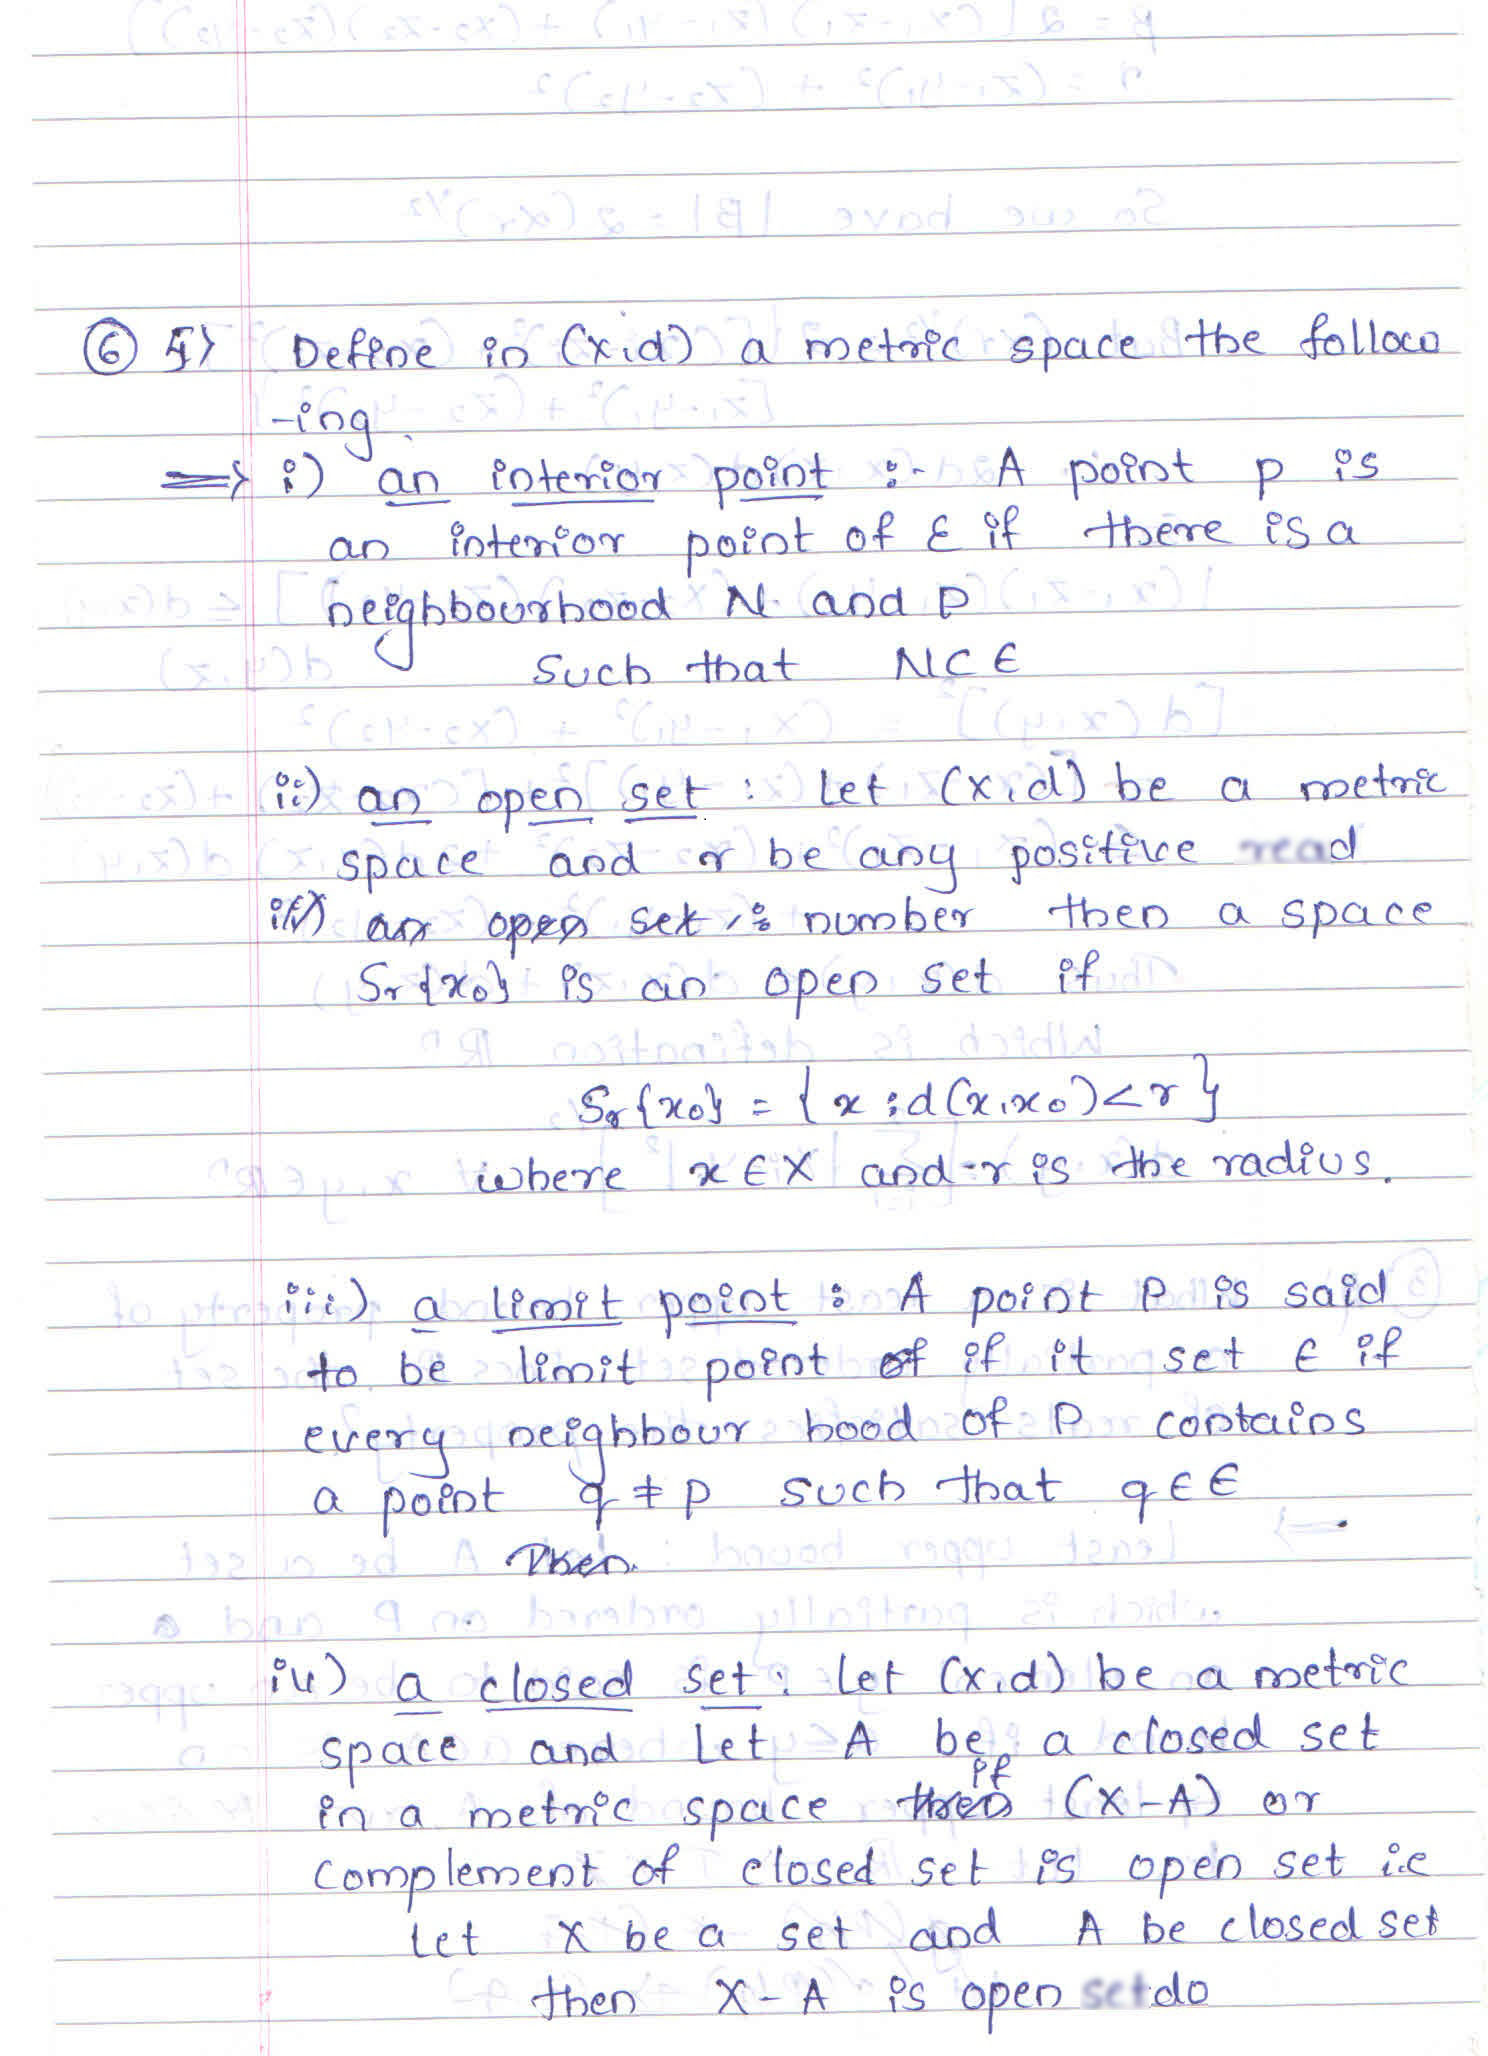 ⑥ 5> Define in (X,d) a metric space the follow
-ing.
⟹ i) an interior point :- A point p is
an interior point of E if there is a
neighbourhood N and P
such that N⊂E
ii) an open set : Let (X,d) be a metric
space and r be any positive
iii) an open set : number then a space
Sr{x₀} is an open set if
Sr{x₀} = { x : d(x,x₀) < r }
where x ∈ X and r is the radius.
iii) a limit point : A point P is said
to be limit point of if it set E if
every neighbour hood of P contains
a point q ≠ p such that q ∈ E
Then
iv) a closed set : Let (X,d) be a metric
space and Let A be a closed set
if
in a metric space then (X-A) or
complement of closed set is open set i.e
Let X be a set and A be closed set
then X-A is open